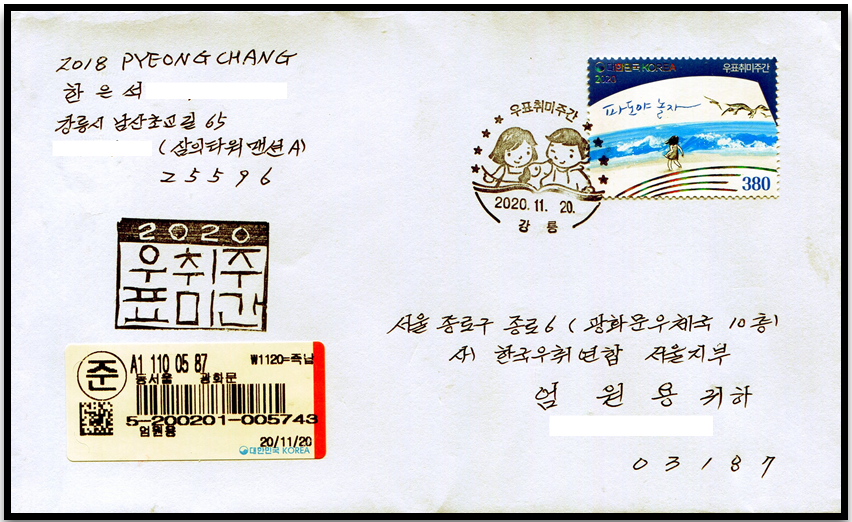 2018 PYEONGCHANG
한은석
강릉시 남산초교길 65
(삼익타워맨션A)
25596
대한민국 KOREA
2020
우표취미주간
파도야 놀자
380
우표취미주간
2020. 11. 20.
강 릉
2020
우취주
표미간
준
A1 110 05 87
₩1120=즉납
동서울 광화문
5-200201-005743
엄원용
20/11/20
대한민국 KOREA
서울 종로구 종로6 (광화문우체국 10층)
사) 한국우취연합 서울지부
엄 원 용 귀하
03187